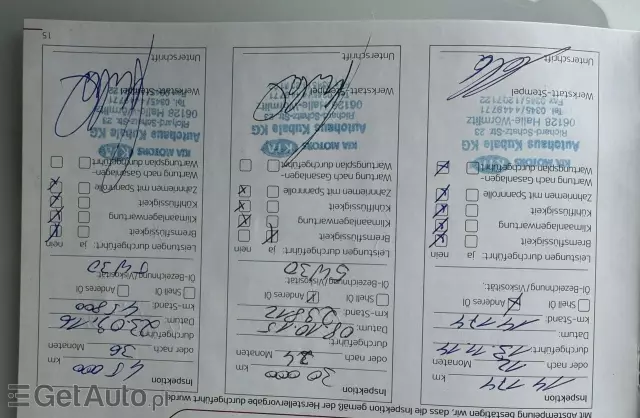 Mit Abstempelung wird bestätigt, dass die Inspektion gemäß der Herstellervorgabe durchgeführt wurde
Inspektion
14 174 km
oder nach 12 Monaten
durchgeführt: 13.11.14
Datum:
km-Stand: 14.174
Shell Öl Anderes Öl
Öl-Bezeichnung/Viskosität:
Leistungen durchgeführt: ja nein
Bremsflüssigkeit
Klimaanlagenwartung
Kühlflüssigkeit
Zahnriemen mit Spannrolle
Wartung nach Gasanlagen-
Wartungsplan durchgeführt
KIA MOTORS
Autohaus Kubale KG
Richard-Schatz-Str. 23
06128 Halle-Wörmlitz
Tel. 0345/
Fax 0345/
Werkstatt-Stempel
Unterschrift
Inspektion
30 000 km
oder nach 24 Monaten
durchgeführt:
Datum: 01.10.15
km-Stand: 29812
Shell Öl Anderes Öl
Öl-Bezeichnung/Viskosität:
5W30
Leistungen durchgeführt: ja nein
Bremsflüssigkeit
Klimaanlagenwartung
Kühlflüssigkeit
Zahnriemen mit Spannrolle
Wartung nach Gasanlagen-
Wartungsplan durchgeführt
KIA MOTORS
Autohaus Kubale KG
06128 Halle-Wörmlitz
Werkstatt-Stempel
Unterschrift
Inspektion
45 000 km
oder nach 36 Monaten
durchgeführt:
Datum: 23.09.16
km-Stand: 45800
Shell Öl Anderes Öl
Öl-Bezeichnung/Viskosität
5W30
Leistungen durchgeführt: ja nein
Bremsflüssigkeit
Klimaanlagenwartung
Kühlflüssigkeit
Zahnriemen mit Spannrolle
Wartung nach Gasanlagen-
Wartungsplan durchgeführt
KIA MOTORS
Autohaus Kubale KG
06128 Halle
Werkstatt-Stempel
Unterschrift
15
GetAuto.pl